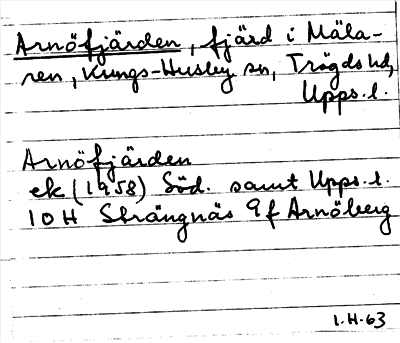 Arnöfjärden, fjärd i Mäla-
ren, Kungs-Husby sn, Trögds hd,
Upps. l.
Arnöfjärden
ek (1958) Söd. samt Upps. l.
10 H Strängnäs 9 f Arnöberg
I.H.63